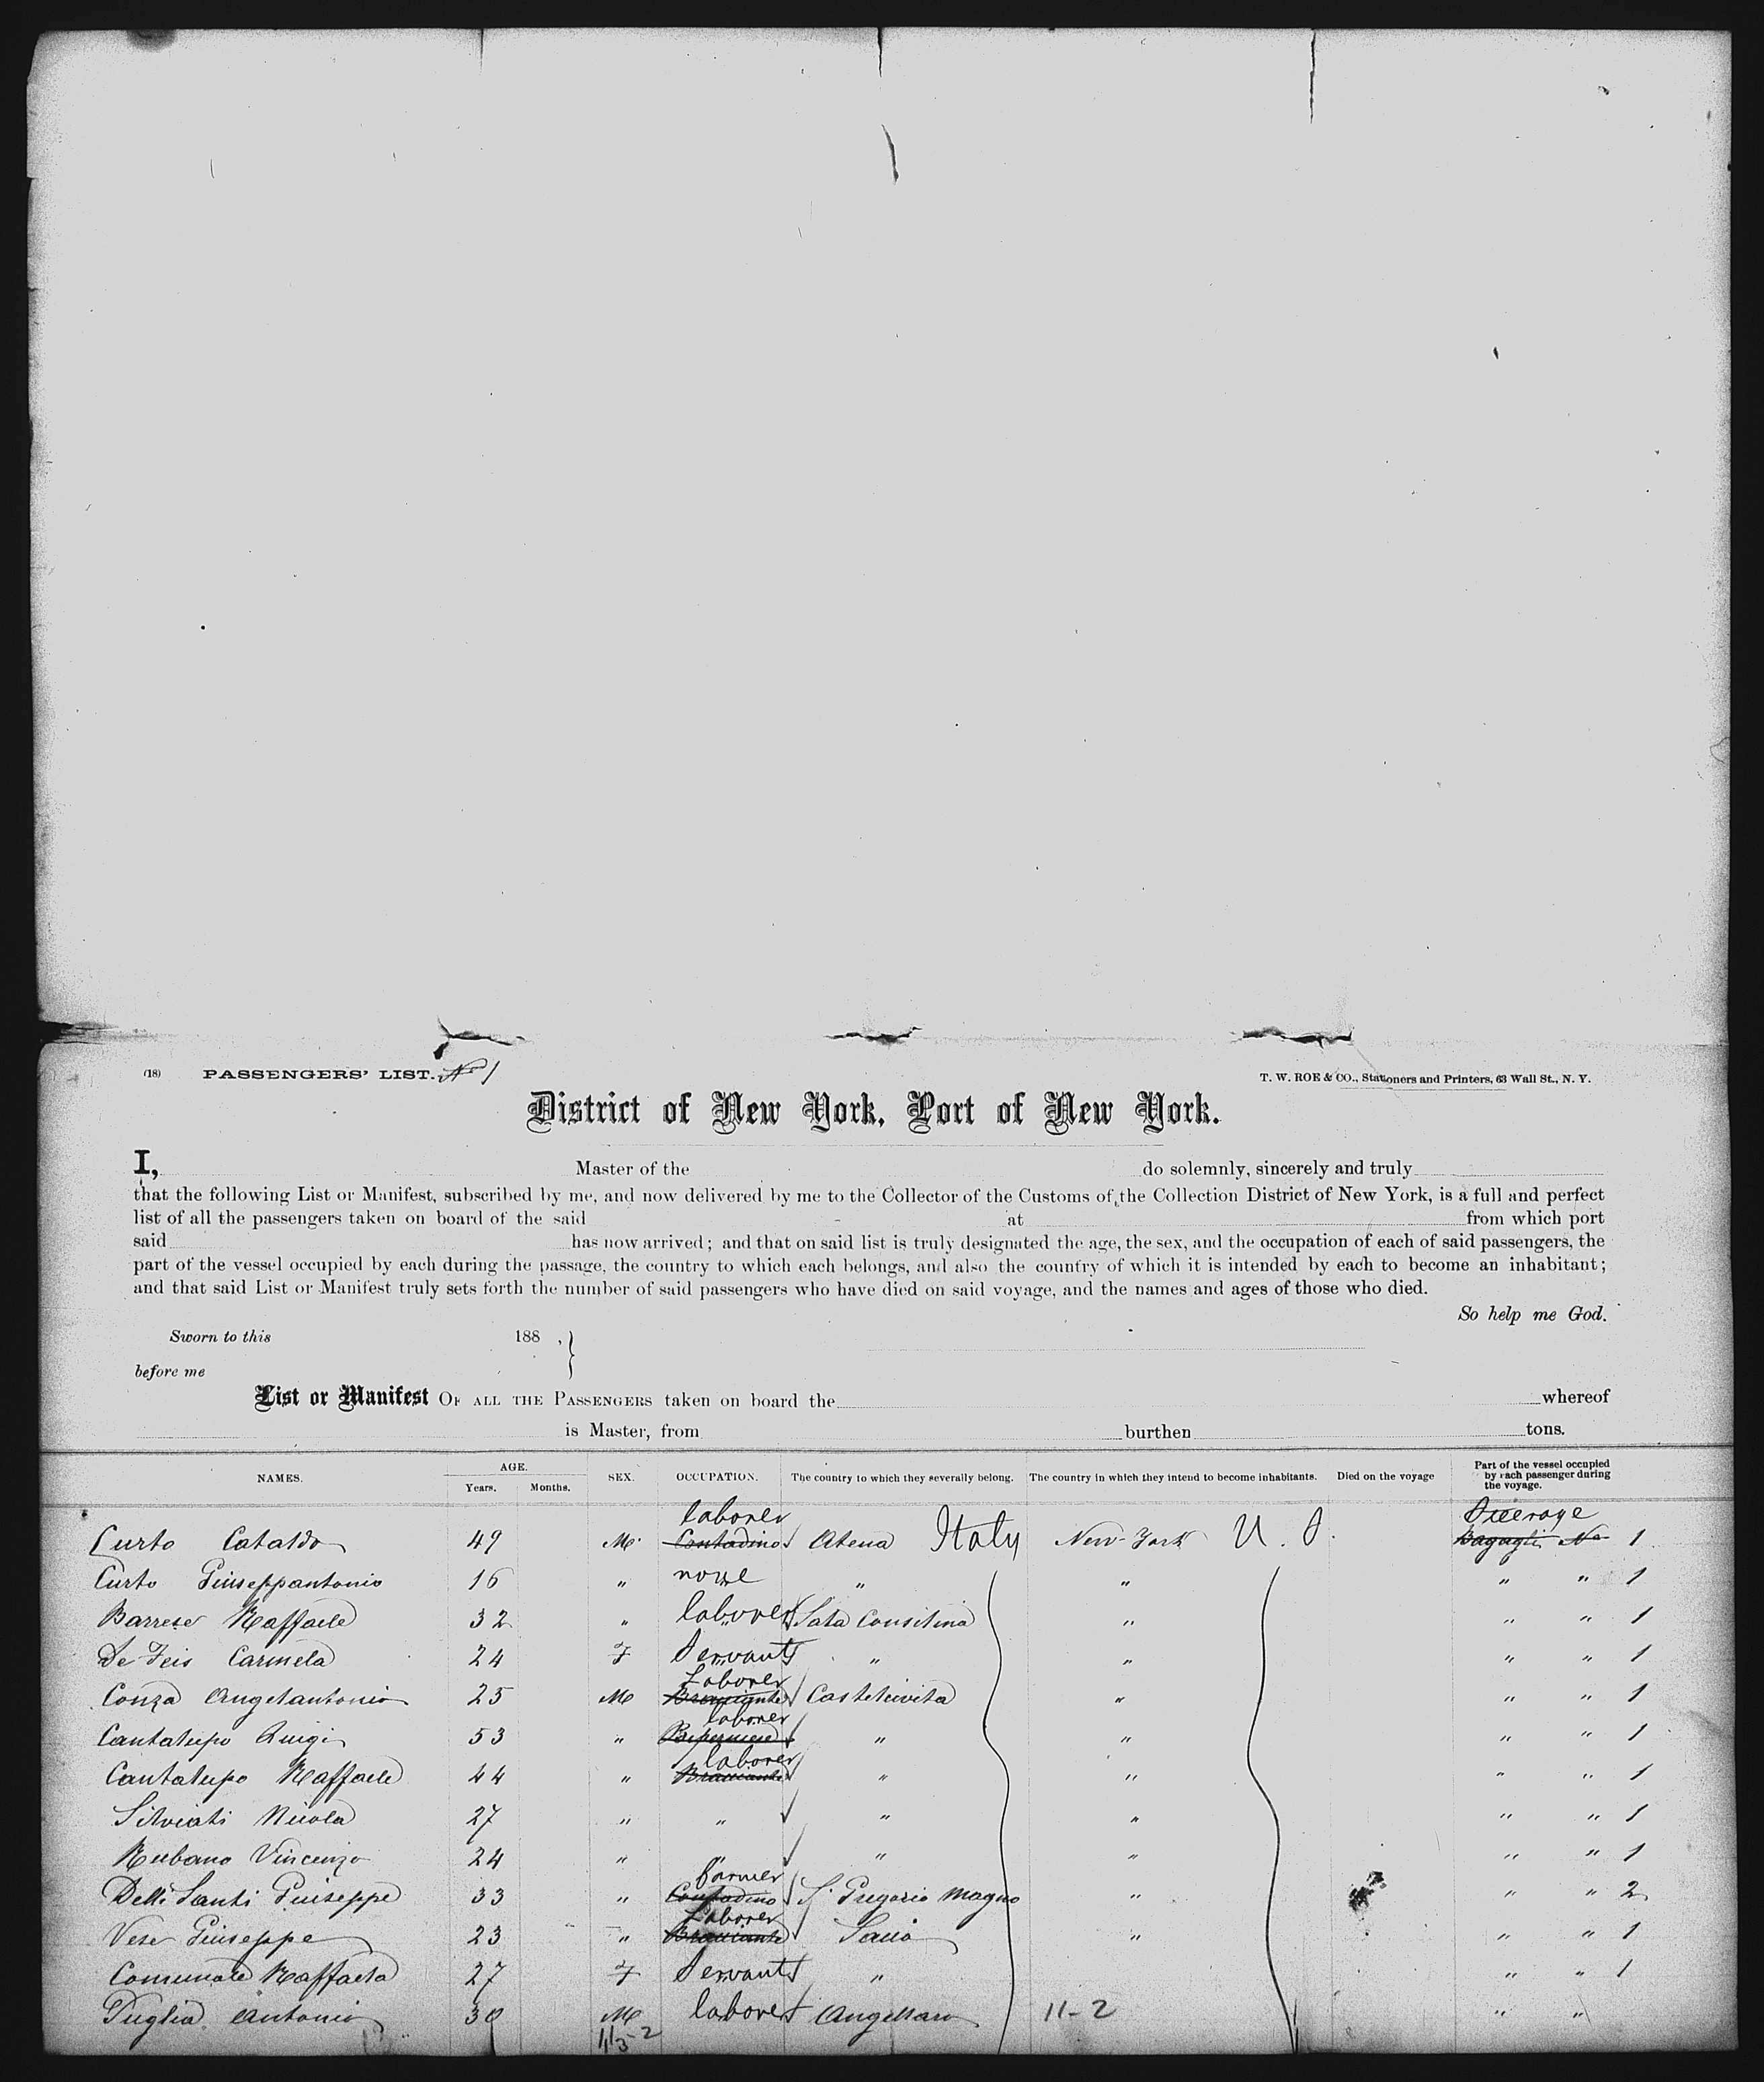 (18) PASSENGERS' LIST. No 1
T. W. ROE & CO., Stationers and Printers, 63 Wall St., N. Y.
District of New York, Port of New York.
I, Master of the do solemnly, sincerely and truly
that the following List or Manifest, subscribed by me, and now delivered by me to the Collector of the Customs of the Collection District of New York, is a full and perfect
list of all the passengers taken on board of the said at from which port
said has now arrived; and that on said list is truly designated the age, the sex, and the occupation of each of said passengers, the
part of the vessel occupied by each during the passage, the country to which each belongs, and also the country of which it is intended by each to become an inhabitant;
and that said List or Manifest truly sets forth the number of said passengers who have died on said voyage, and the names and ages of those who died.
So help me God.
Sworn to this 188 , }
before me
List or Manifest OF ALL THE PASSENGERS taken on board the whereof
is Master, from burthen tons.
NAMES. AGE. Years. Months. SEX. OCCUPATION. The country to which they severally belong. The country in which they intend to become inhabitants. Died on the voyage Part of the vessel occupied by each passenger during the voyage.
laborer Steerage
Curto Cataldo 49 M. Contadino Atena Italy New-York U. S. Bagagli No 1
Curto Giuseppantonio 16 " none " " " " 1
Barrese Raffaele 32 " laborer Sala Consilina " " " 1
De Feis Carmela 24 F Servant " " " " 1
Laborer
Conza Angelantonio 25 M Bracciante Castelcivita " " " 1
laborer
Cantalupo Luigi 53 " " " " " 1
laborer
Cantalupo Raffaele 44 " Bracciante " " " " 1
Silviati Nicola 27 " " " " " " 1
Rubano Vincenzo 24 " " " " " " 1
farmer
Delli Santi Giuseppe 33 " Contadino S. Gregorio Magno " " " 2
Laborer
Vese Giuseppe 23 " Bracciante " " " 1
Comunale Raffaela 27 F Servant " " " 1
Puglia Antonio 30 M laborer 11-2 " "